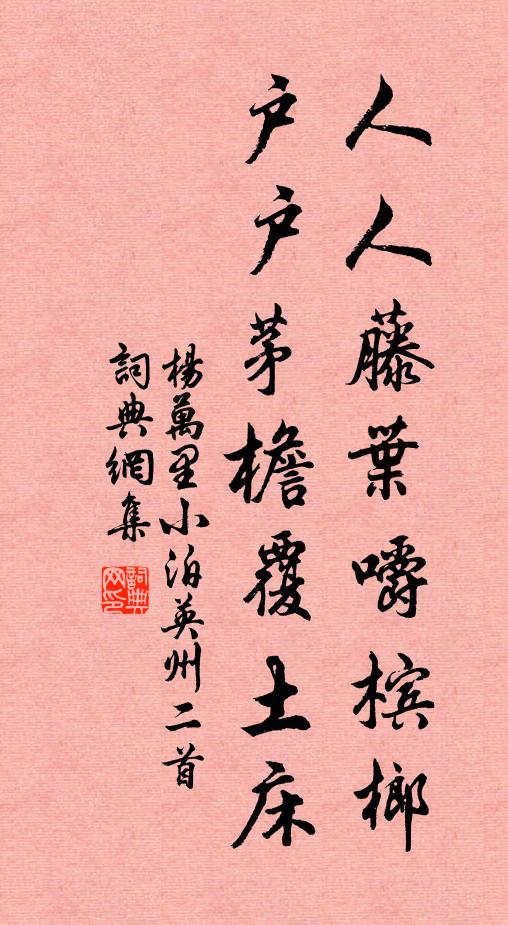 人人藤葉嚼槟榔
户户茅檐覆土床
楊萬里小泊英州二首
詞典網集
詞典网印